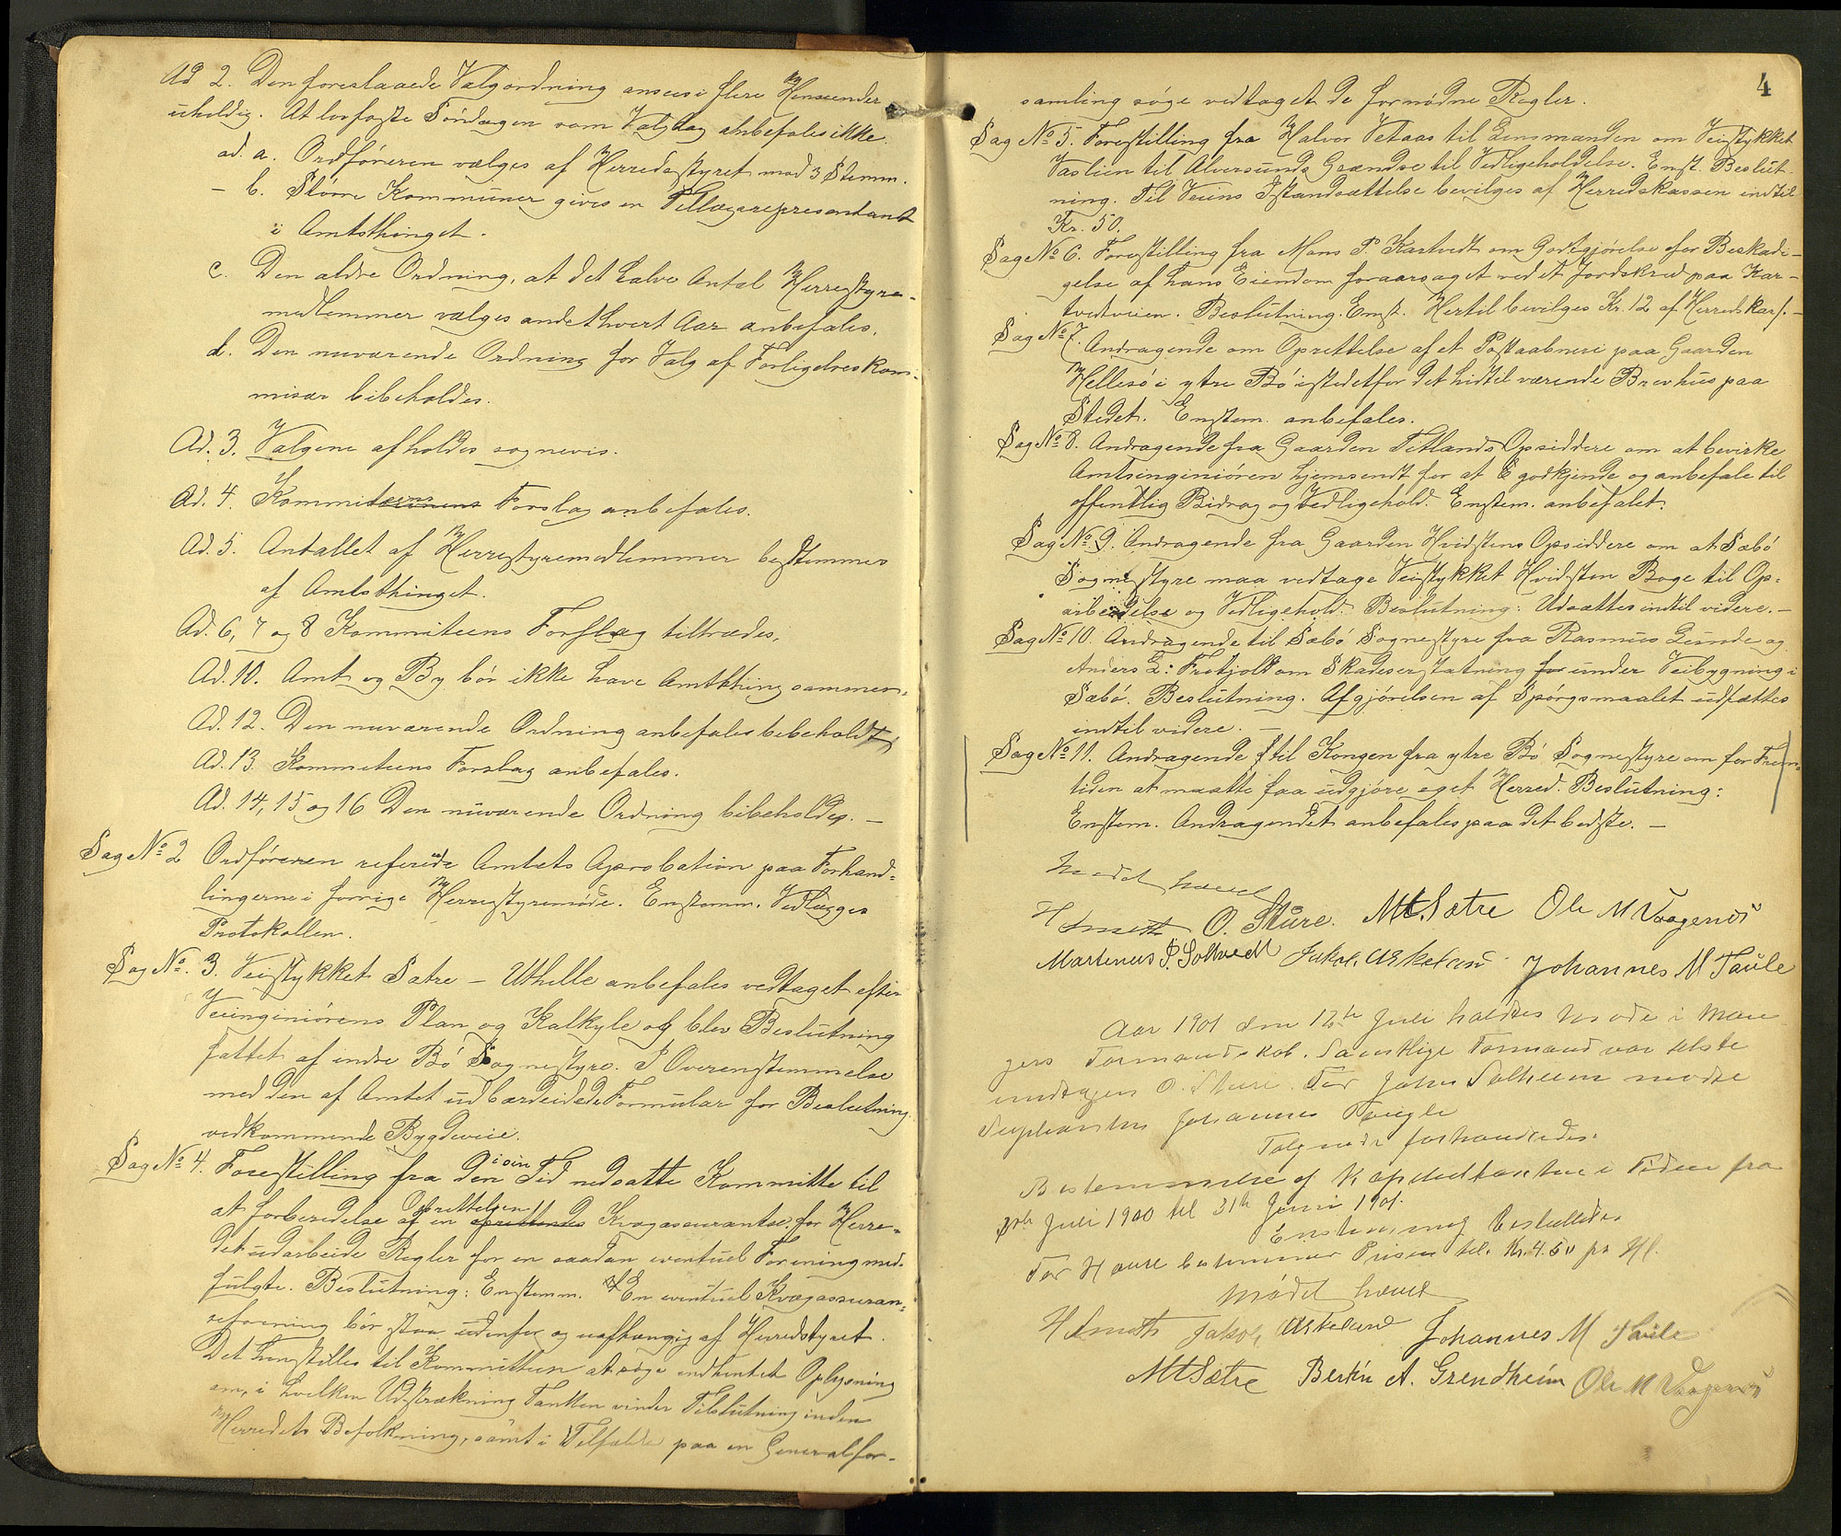 Ad 2. Den foreslaaede Valgordning ansees i flere Henseender
uheldig. At lovfæste Søndagen som Valgdag anbefales ikke.
ad. a. Ordføreren vælges af Herredsstyret med 3 Stemm.
- b. Større Kommuner gives en Tillægsrepresentant
i Amtsthinget.
c. Den ældre Ordning, at det halve Antal Herrestyre-
medlemmer vælges andethvert Aar anbefales.
d. Den nuværende Ordning for Valg af Forligelseskom-
misær bibeholdes.
Ad. 3. Valgene afholdes sognevis.
Ad. 4. Kommiteens Forslag anbefales.
Ad. 5. Antallet af Herrestyremedlemmer bestemmes
af Amtsthinget.
Ad. 6, 7 og 8 Kommiteens Forslag tiltrædes.
Ad. 10. Amt og By bør ikke have Amtsthing sammen.
Ad. 12. Den nuværende Ordning anbefales bebeholdt
Ad. 13. Kommiteens Forslag anbefales.
Ad. 14, 15 og 16 Den nuværende Ordning bibeholdes. —
Sag No 2 Ordføreren refererede Amtets Aprobation paa Forhand-
lingerne i forrige Herrestyremøde. Enstemm. Vedlægges
Protokollen.
Sag No. 3. Veistykket Sætre — Uthelle anbefales vedtaget efter
Veiinginiørens Plan og Kalkyle og blev Beslutning
fattet af indre Bø Sognestyre. I Overenstemmelse
med den af Amtet udbardeidede Formular for Beslutning
vedkommende Bygdeveie.
Sag No 4. Forestilling fra den i sin Tid nedsatte Kommitte til
at forberedelse af en Oprettelsen Kvægassurantse for Herre-
det udarbeide Regler for en saadan eventuel Forening med-
fulgte. Beslutning: Enstemm. En eventuel Kvægassuran-
seforening bør staa udenfor og uafhængig af Herredstyret.
Det henstilles til Kommitteen at søge indhentet Oplysning
om, i hvilken Udstrækning Tanken vinder Tilslutning inden
Herredets Befolkning, samt i Tilfælde paa en Generalfor-
4
samling søge vedtaget de fornødne Regler.
Sag No 5. Forestilling fra Halvor Vetaas til Lensmanden om Veistykket
Vaslien til Alversunds Grændse til Vedligeholdelse. Enst. Beslut-
ning. Til Veiens Istandsættelse bevilges af Herredskassen indtil
Kr. 50.
Sag No 6. Forestilling fra Mons P. Kartvedt om Godtgjørelse for Beskadi-
gelse af hans Eiendom foraarsaget ved et Jordskred paa Kar-
tvedtveien. Beslutning. Enst. Hertil bevilges Kr. 12 af Herredskas. —
Sag No 7. Andragende om Oprettelse af et Postaabneri paa Gaarden
Hellesø i ytre Bø istedetfor det hidtil værende Brevhus paa
Stedet. Enstem. anbefales.
Sag No 8. Andragende fra Gaarden Tetlands Opsiddere om at bevirke
Amtsinginiøren hjemsendt for at godkjende og anbefale til
offentlig Bidrag og Vedligehold. Enstem. anbefalet.
Sag No. 9. Andragende fra Gaarden Hvidstens Opsiddere om at Sæbø
Sognestyre maa vedtage Veistykket Hvidsten Boge til Op-
arbeidelse og Vedligehold. Beslutning: Udsættes indtil videre. —
Sag No 10. Andragende til Sæbø Sognestyre fra Rasmus Lunde og
Anders L: Frotjold om Skadeserstatning for under Veibygning i
Sæbø. Beslutning. Afgjørelsen af Spørgsmaalet udsættes
indtil videre. —
Sag No 11. Andragende til Kongen fra ytre Bø Sognestyre om for Frem-
tiden at maatte faa udgjøre eget Herred. Beslutning:
Enstem. Andragendet anbefales paa det bedste. —
Mødet hævet
O. Sture. M Sætre Ole M Vaagenes
Martinus P. Soltvedt Jakob Askeland Johannes M Taule
Aar 1901 den 12te Juli holdtes Møde i Man-
gers Formandskab. Samtlige Formænd var tilstede
undtagen O. Sture. For Jakob Solheim mødte
Suplianten Johannes Taugle
Følgende forhandledes.
Bestemmelse af Kapiteltaxterne i Tiden fra
Juli 1900 til 31te Juni 1901.
Enstemmig besluttedes
For Havre bestemmes Prisen til Kr. 4.50 pr Hl.
Mødet hævet
Jakob Askeland Johannes M Taule
M Sætre Berlin A. Grendheim Ole M Vaagenes